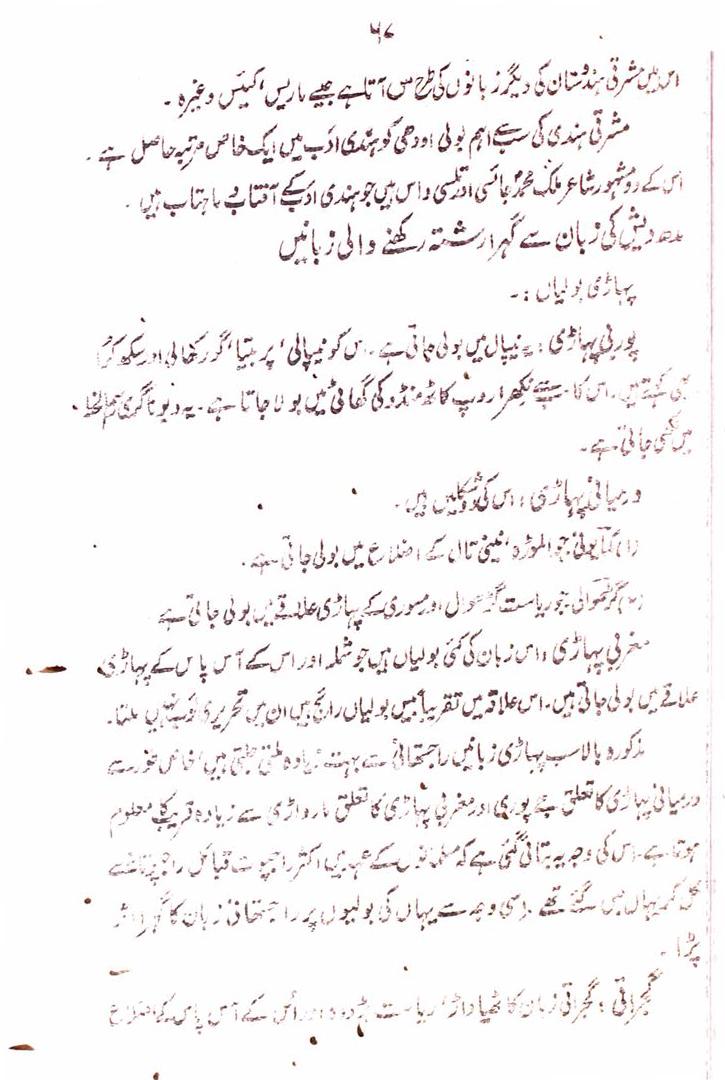 ۵۷
اس میں مشرقی ہندوستان کی دیگر زبانوں کی طرح س آتا ہے جیسے ماریس، کیئس وغیرہ ۔
مشرقی ہندی کی سب سے اہم بولی اودھی کو ہندی ادب میں ایک خاص مرتبہ حاصل ہے ۔
اس کے دو مشہور شاعر ملک محمد جائسی اور تلسی داس ہیں جو ہندی ادب کے آفتاب و ماہتاب ہیں ۔
مدھ دیش کی زبان سے گہرا رشتہ رکھنے والی زبانیں
پہاڑی بولیاں :-
پوربی پہاڑی : یہ نیپال میں بولی جاتی ہے ۔ اس کو نیپالی، پربتیا، گورکھالی اور
بھی کہتے ہیں ۔ اس کا سب سے نکھرا روپ کاٹھمنڈو کی گھاٹی میں بولا جاتا ہے ۔ یہ دیوناگری رسم الخط
میں لکھی جاتی ہے ۔
درمیانی پہاڑی : اس کی دو شکلیں ہیں ۔
(۱) کمایونی جو الموڑہ، نینی تال کے اضلاع میں بولی جاتی ہے ۔
(۲) گڑھوالی جو ریاست گڑھوال اور مسوری کے پہاڑی علاقے میں بولی جاتی ہے
مغربی پہاڑی : اس زبان کی کئی بولیاں ہیں جو شملہ اور اس کے آس پاس کے پہاڑی
علاقے میں بولی جاتی ہیں ۔ اس علاقہ میں تقریباً بیس بولیاں رائج ہیں ان میں تحریری ادب نہیں ملتا ۔
مذکورہ بالا سب پہاڑی زبانیں راجستھانی سے بہت زیادہ ملتی جلتی ہیں، خاص طور سے
درمیانی پہاڑی کا تعلق جے پوری اور مغربی پہاڑی کا تعلق مارواڑی سے زیادہ قریب کا معلوم
ہوتا ہے ۔ اس کی وجہ یہ بتائی گئی ہے کہ مسلمانوں کے عہد میں اکثر راجپوت قبائل راجپوتانے سے
کر یہاں بس گئے تھے ۔ اسی وجہ سے یہاں کی بولیوں پر راجستھانی زبان کا گہرا اثر
پڑا ۔
گجراتی : گجراتی زبان کاٹھیاواڑ، ریاست بڑودہ اور اُس کے آس پاس کے اضلاع